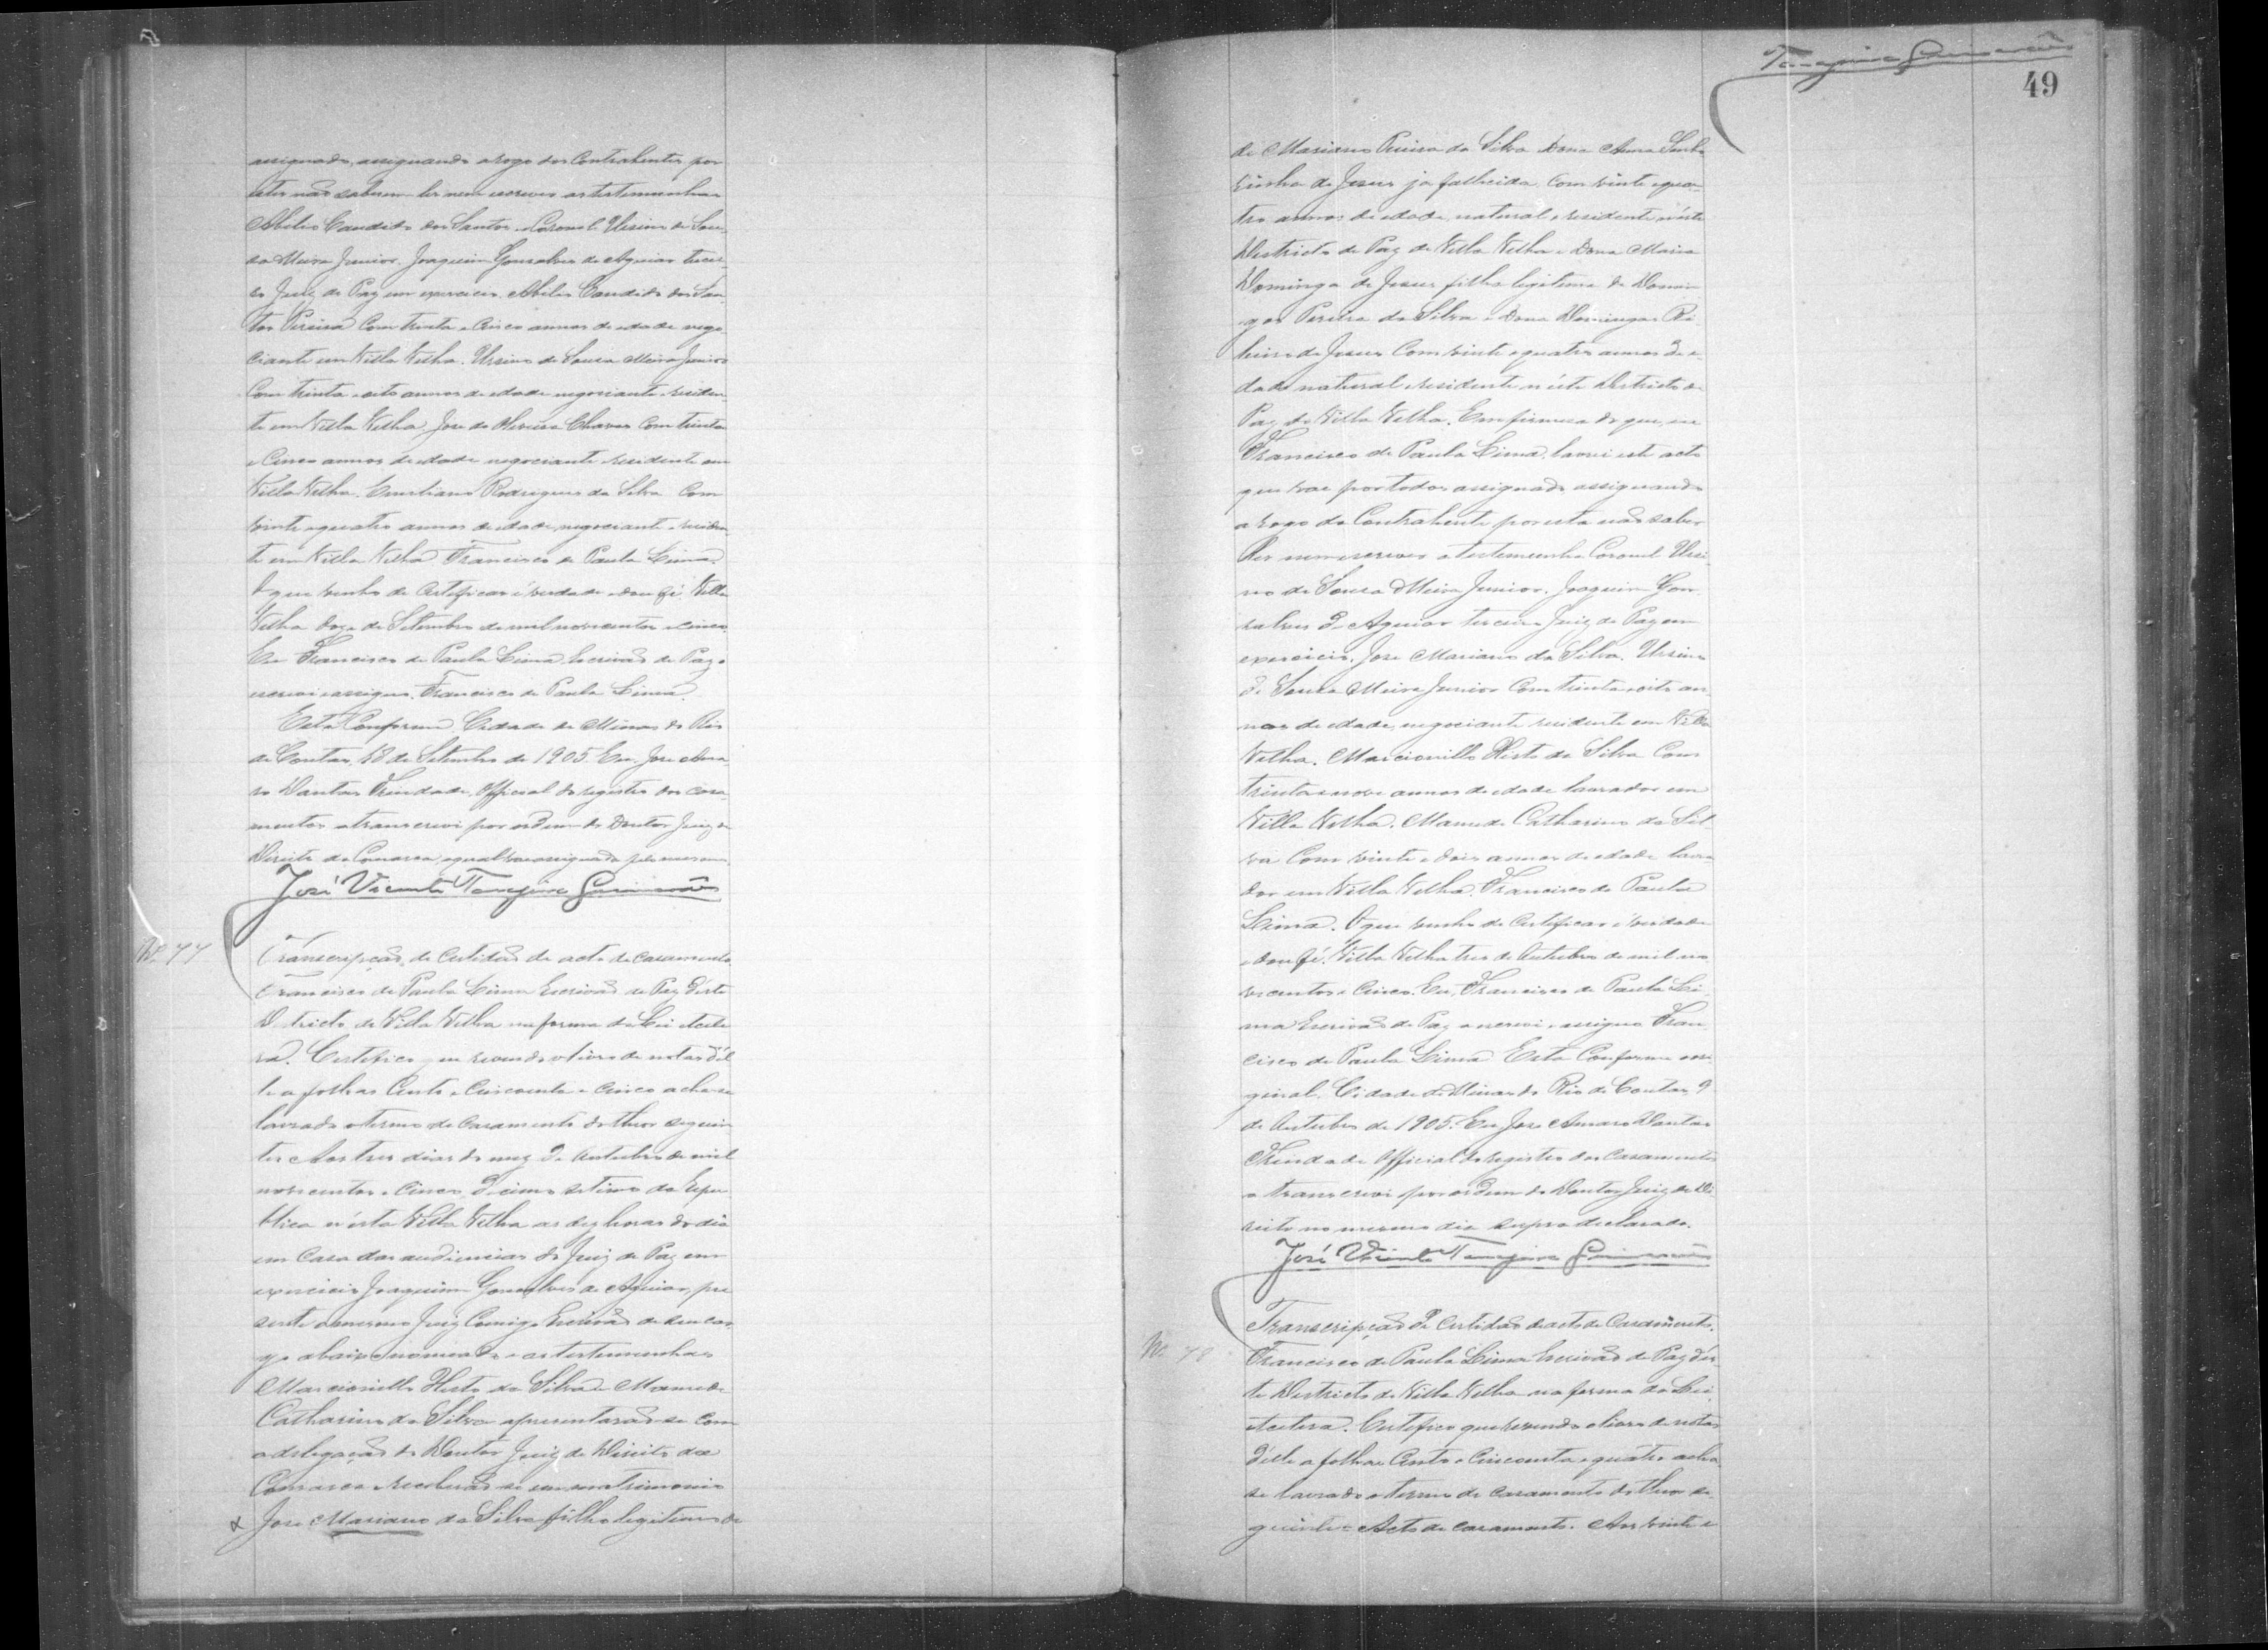 assignado, assignando a rogo dos Contrahentes por
estes não saberem ler nem escrever as testemunhas
Abilio Candido dos Santos e Coronel Ursino de Sou-
sa Meira Junior. Joaquim Gonsalves de Aguiar tercei-
ro Juiz de Paz em exercicio. Abilio Candido dos San
tos Pereira Com trinta e Cinco annos de edade nego
ciante em Villa Velha. Ursino de Sousa Meira Junior
Com trinta e oito annos de edade negociante residen
te em Villa Velha. Jose de Oliveira Chaves Com trinta
e Cinco annos de edade negociante residente em
Villa Velha. Rodrigues da Silva Com
vinte e quatro annos de edade, negociante e residen
te em Villa Velha Francisco de Paula Lima.
O que venho de Certificar é verdade e dou fé. Villa
Velha doze de Setembro de mil novecentos e cinco.
Eu Francisco de Paula Lima Escrivão de Paz o
escrevi e assigno. Francisco de Paula Lima.
Está Conforme Cidade de Minas do Rio
de Contas, 18 de Setembro de 1905. Eu, Jose Ama
ro Dantas Trindade, Official do registro dos casa-
mentos a transcrevi por ordem do Doutor Juiz de
Direito da Comarca, e qual vae assignada pelo mesmo.
José Vicente Tanajura Guimarães
Nº 77
Transcripção de Certidão de acto de Casamento
Francisco de Paula Lima Escrivão de Paz d'este
Districto de Villa Velha na forma da Lei etcete
ra. Certifico que revendo o livro de notas d'es
te a folhas Cento e Cincoenta e Cinco acha-se
lavrado o termo de Casamento do theor seguin
te: Aos tres dias do mez de Outubro de mil
novecentos e Cinco, decimo setimo da Repu
blica n'esta Villa Velha as dez horas do dia
em Casa das audiencias do Juiz de Paz em
exercicio Joaquim Gonsalves de Aguiar, pre
sente o mesmo Juiz Comigo Escrivão de seu car
go abaixo nomeado e as testemunhas
Marcionillo Histo da Silva e Mamede
Catharino da Silva apresentarão-se Com
a delegação do Doutor Juiz de Direito da
Comarca e receberão-se em matrimonio
x Jose Mariano da Silva filho legitimo de
Tanajura Guimarães
49
de Mariano da Silva e Dona Anna Senho
rinha de Jesus já fallecida, Com vinte e qua
tro annos de edade, natural e residente n'este
Districto de Paz de Villa Velha e Dona Maria
Dominga de Jesus filha legitima de Domin
gos Pereira da Silva e Dona Domingas Ri
beiro de Jesus Com vinte e quatro annos de e
dade natural e residente n'este Districto de
Paz de Villa Velha. Em firmeza do que, eu
Francisco de Paula Lima, lavrei este acto
que vae por todos assignado assignando
a rogo da Contrahente por esta não saber
ler nem escrever a testemunha Coronel Ursi
no de Sousa Meira Junior. Joaquim Gon
salves de Aguiar terceiro Juiz de Paz em
exercicio. Jose Mariano da Silva. Ursino
de Sousa Meira Junior Com trinta e oito an
nos de edade, negociante residente em Villa
Velha. Marcionillo Histo da Silva Com
trinta e nove annos de edade lavrador em
Villa Velha. Mamede Catharino da Sil
va Com vinte e dois annos de edade lavra
dor em Villa Velha. Francisco de Paula
Lima. O que venho de Certificar é verdade
e dou fé. Villa Velha tres de Outubro de mil no
vecentos e Cinco. Eu, Francisco de Paula Li
ma Escrivão de Paz o escrevi e assigno Fran
cisco de Paula Lima Está Conforme o ori
ginal. Cidade de Minas do Rio de Contas, 9
de Outubro de 1905. Eu Jose Amaro Dantas
Trindade Official do registro dos Casamentos
a transcrevi por ordem do Doutor Juiz de Di
reito no mesmo dia supra declarado.
José Vicente Tanajura Guimarães
Nº 78
Transcripção de Certidão de acto de Casamento.
Francisco de Paula Lima Escrivão de Paz d'es
te Districto de Villa Velha na forma da Lei
etcetera. Certifico que revendo o livro de notas
d'este a folhas Cento e Cincoenta e quatro acha
se lavrado o termo de casamento do theor se
guinte = Acto de casamento. Aos vinte e